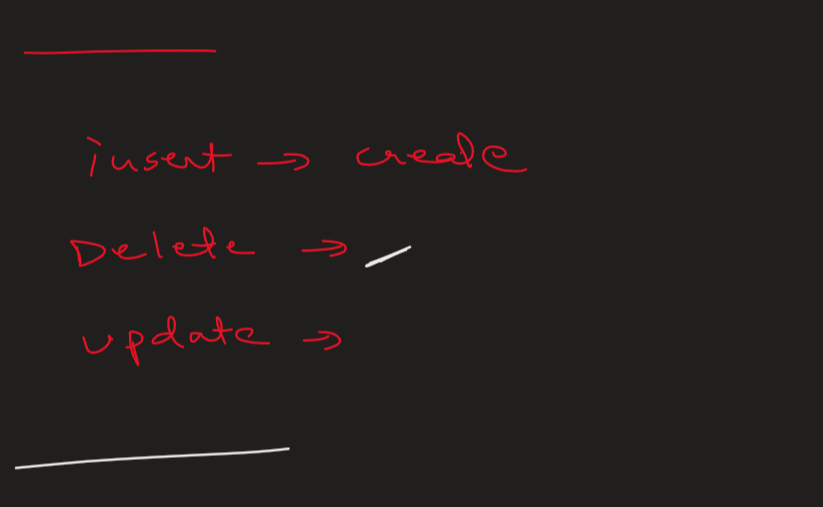 insert → create
Delete →
update →